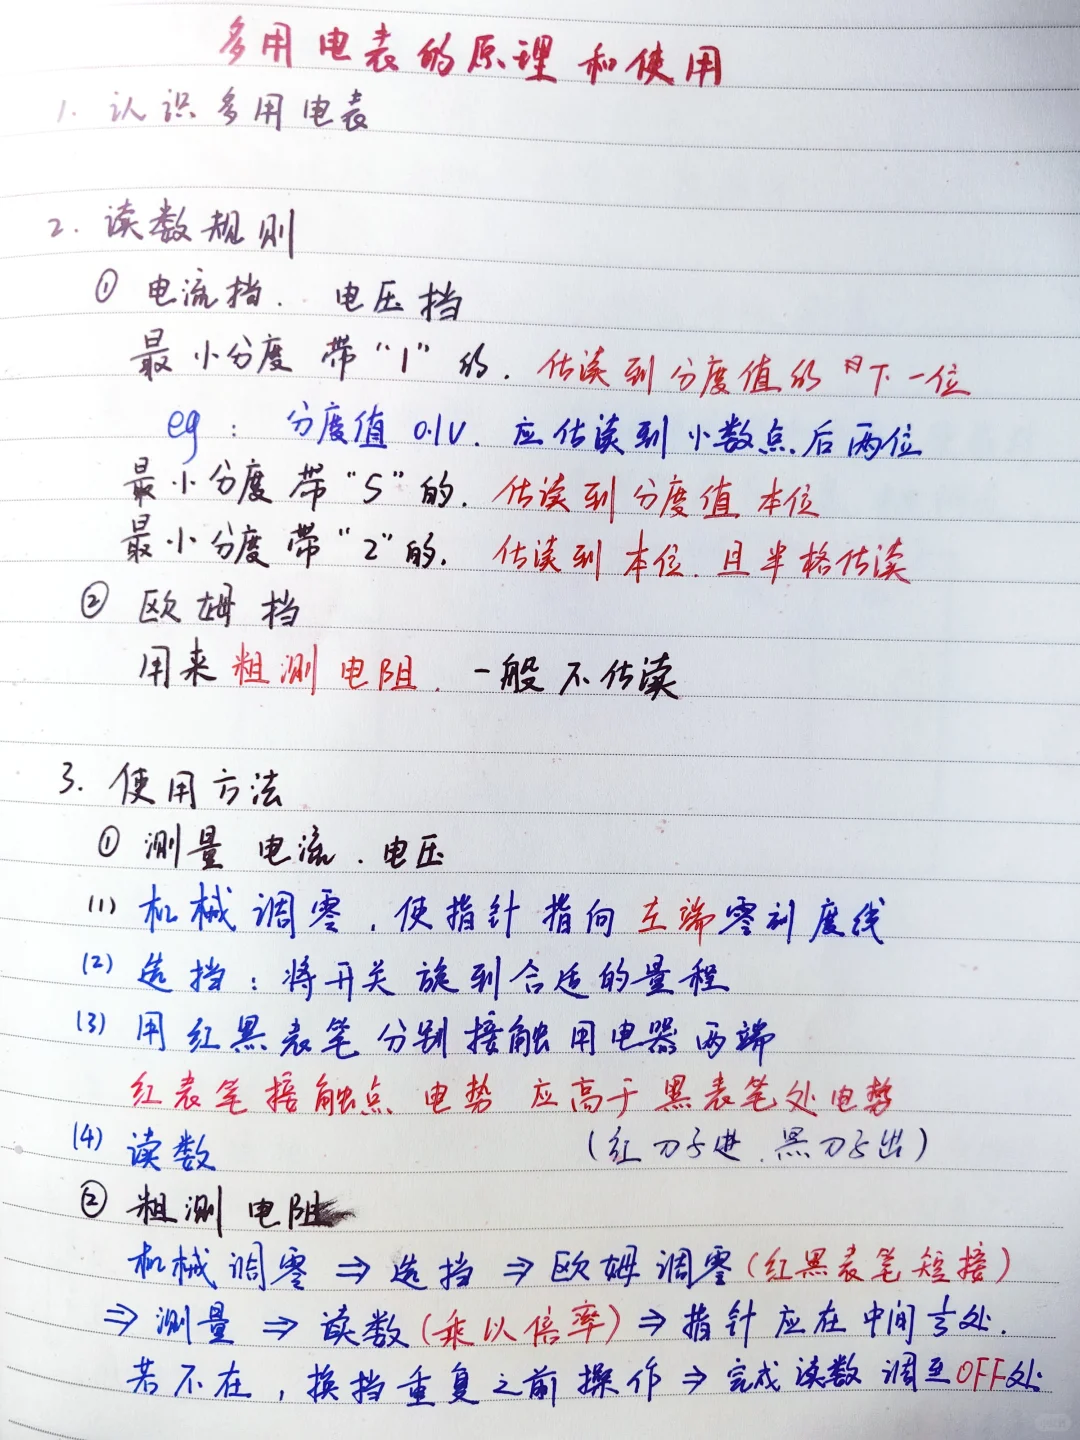 多用电表的原理和使用
1. 认识多用电表
2. 读数规则
① 电流挡. 电压挡
最小分度带“1”的. 估读到分度值的下一位
eg: 分度值0.1V. 应估读到小数点后两位
最小分度带“5”的. 估读到分度值本位
最小分度带“2”的. 估读到本位. 且半格估读
② 欧姆挡
用来粗测电阻. 一般不估读
3. 使用方法
① 测量电流. 电压
(1) 机械调零, 使指针指向左端零刻度线
(2) 选挡: 将开关旋到合适的量程
(3) 用红黑表笔分别接触用电器两端
红表笔接触点电势应高于黑表笔处电势
(4) 读数 (红刀子进. 黑刀子出)
② 粗测电阻
机械调零 ⇒ 选挡 ⇒ 欧姆调零(红黑表笔短接)
⇒ 测量 ⇒ 读数(乘以倍率) ⇒ 指针应在中间处.
若不在, 换挡重复之前操作 ⇒ 完成读数调至OFF处